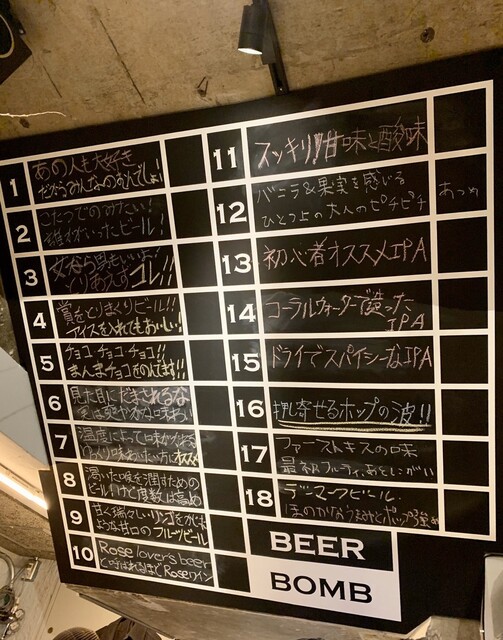 1
あの人も大好き
だからみんなのむんでしょ!
2
こたつでのみたい!
ビール!
3
女なら男もいいよ!
とりあえず コレ!!
4
賞をとりまくりビール!!
アイスを入れてもおいしい!
5
チョコ・チョコ・チョコ!!
まんまチョコをのんでます!!
6
見た目にだまされるな
味わい
7
温度によって味がかわる
味わいたい方にオススメ
8
渇いた喉を潤すための
ビールだけど度数は高め
9
甘く瑞々しいリンゴをかじる
ような甘口のフルーツビール
10
Rose lover's beer
と呼ばれるほどRoseワイン
11
スッキリ!甘味と酸味
12
バニラ&果実を感じる
ひとつ上の大人のピチピチ
13
初心者オススメIPA
14
コーラルウォーターで造った
IPA
15
ドライでスパイシーなIPA
16
押し寄せるホップの波!!
17
ファーストキスの味
最初フルーティ、あとにがい
18
デンマークビール.
ほのかな
BEER
BOMB